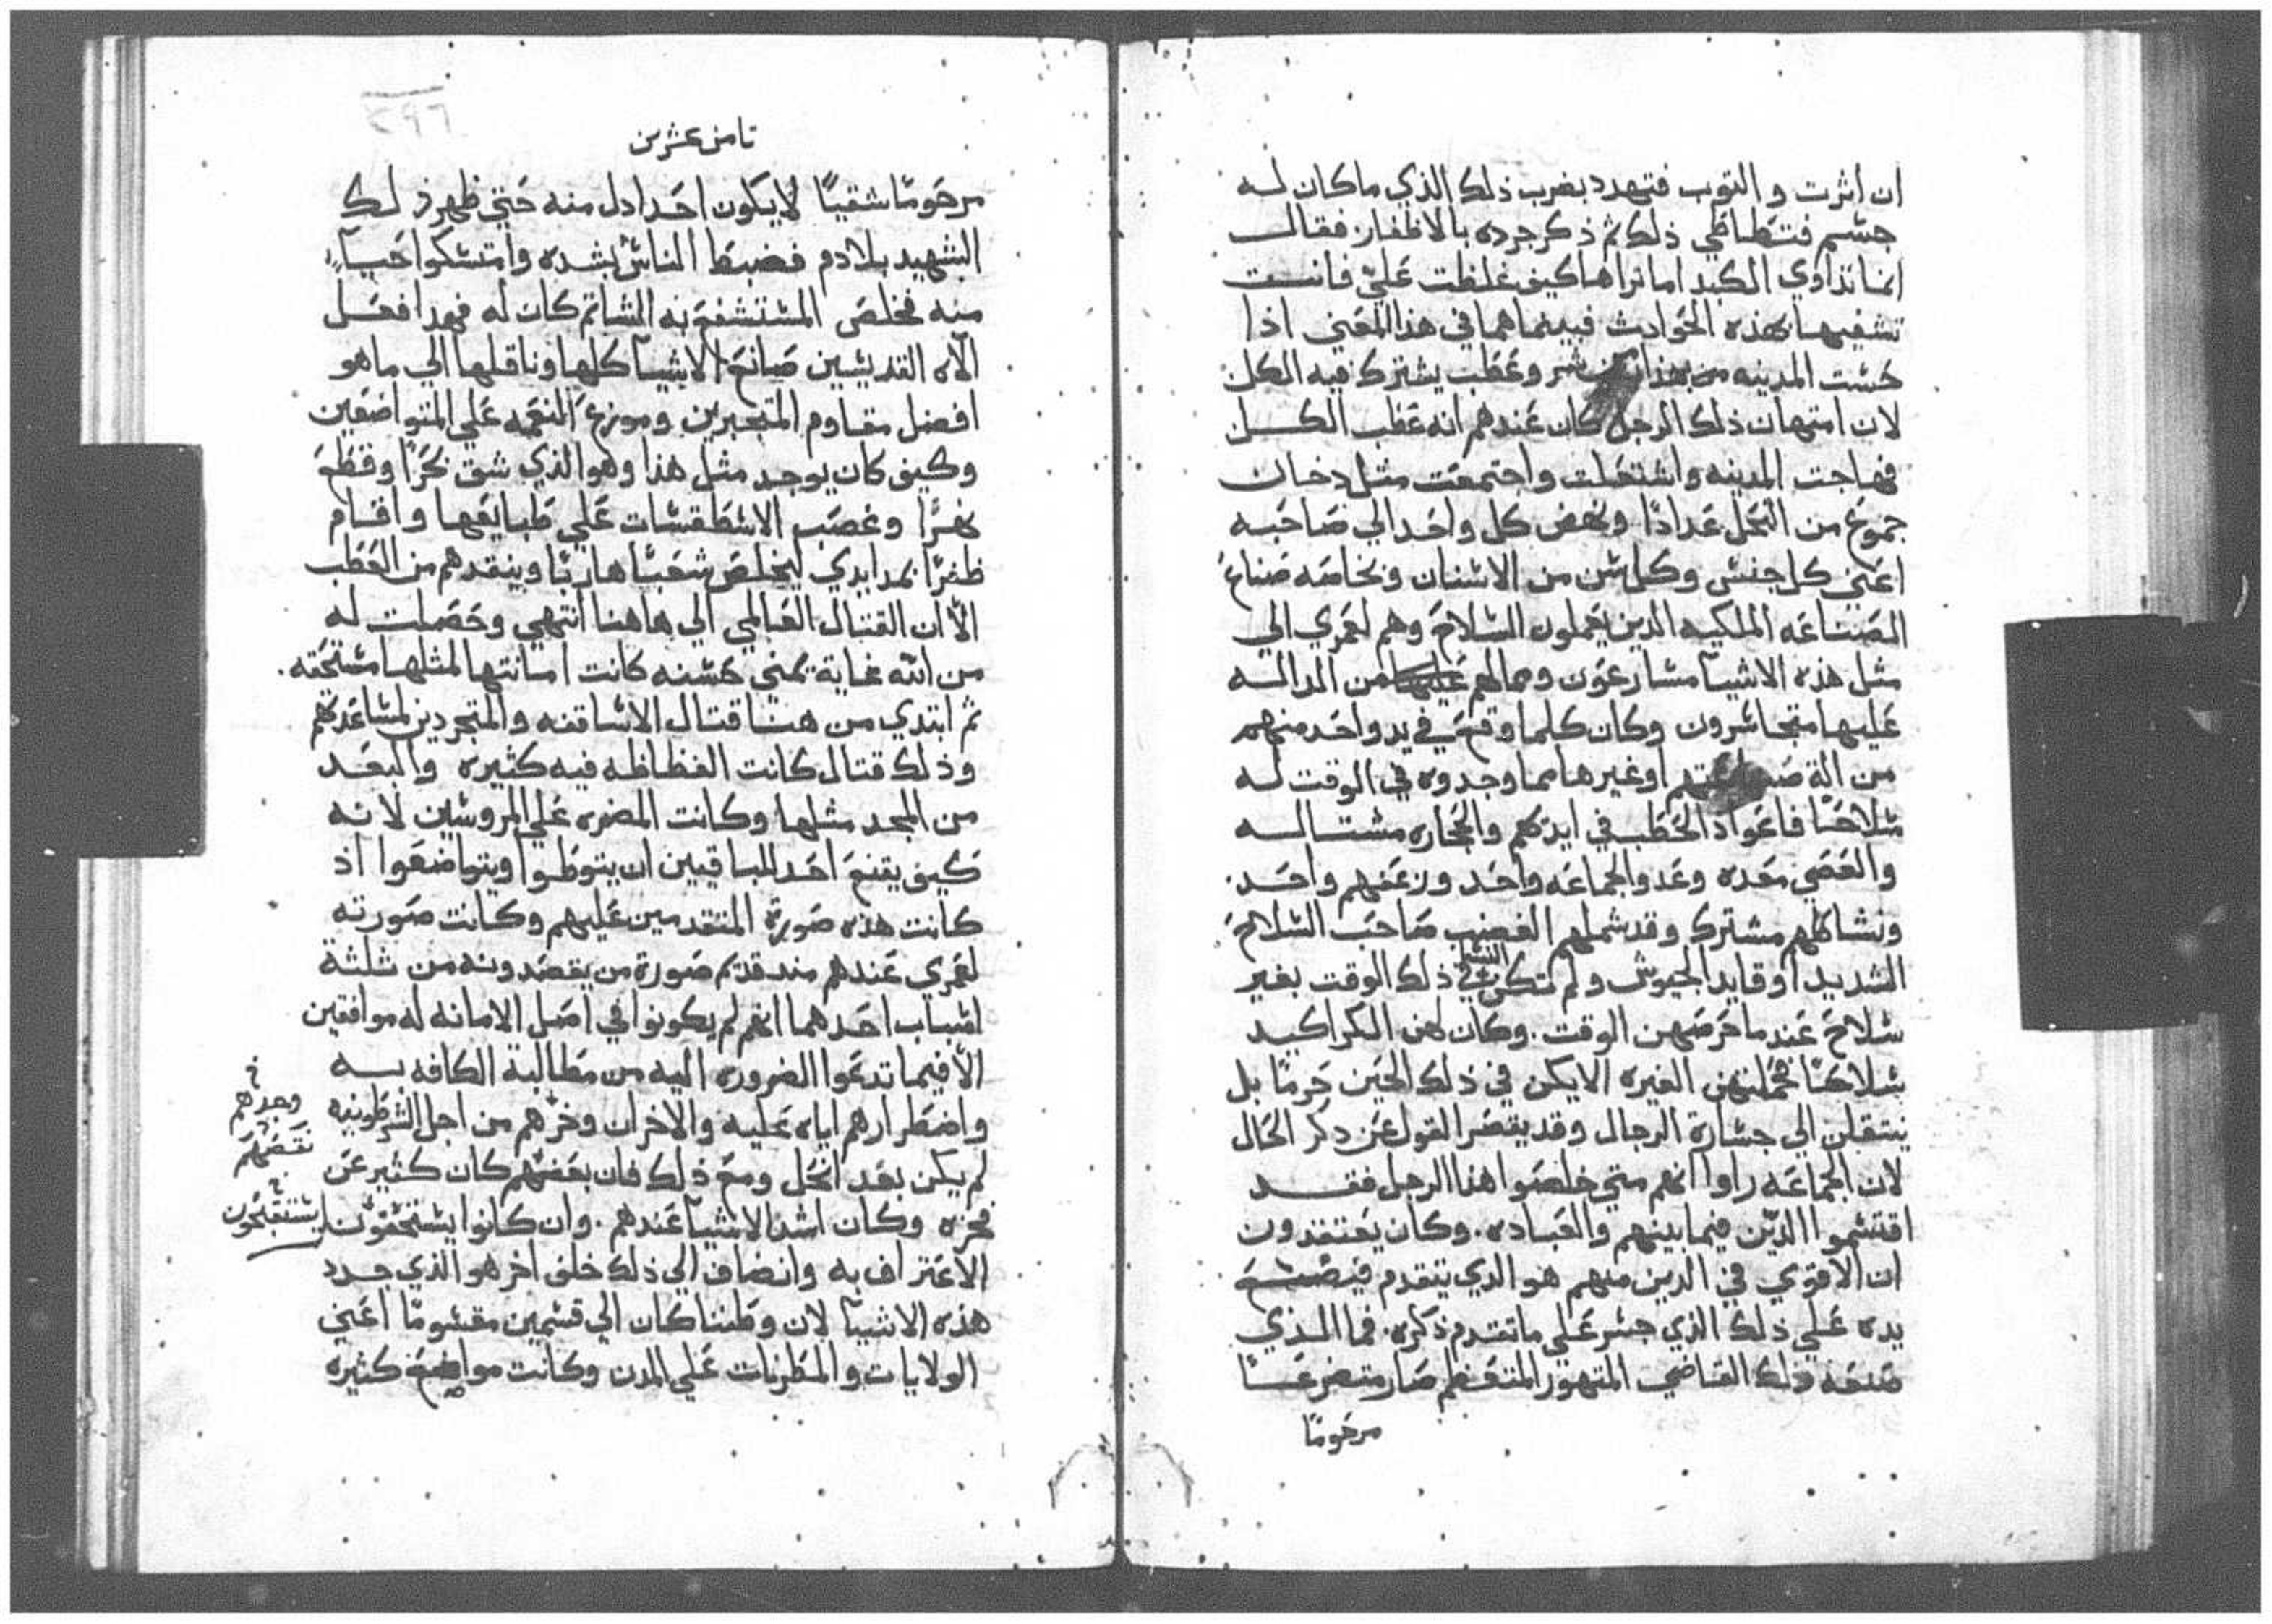 ان اثرت والتوب فتهدد بضرب ذلك الذي ما كان له
جسم فتطاطي ذلك ثم ذكر جرده بالاظفار فقال
انما تداوي الكبد اما تراها كيف غلظت علي فانت
تشفيها بهذه الحوادث فبينما هما في هذا المعني اذا
حست المدينه من شر وعطب يشترك فيه الكل
لان امتهان ذلك الرجل كان عندهم انه عطب الكل
فهاجت المدينه واشتعلت واجتمعت مثل دخان
جموع من النحل عدادًا ونهض كل واحد الي صاحبه
اعني كل جنس وكل سن من الاسنان وبخاصه صناع
الصناعه الملكيه الدين يعملون السلاح وهم لعمري الي
مثل هذه الاشيآ مسارعون ومالهم من الداله
عليها متجاسرون وكان كلما وقع في يد واحد منهم
من الة او غيرها مما وجدوه في الوقت له
سلاحًا فاعواد الحطب في ايديهم والحجاره مشتاله
والعصي معده وغدو الجماعه واحد وزعفهم واحد.
ونشاطهم مشترك وقد شملهم الغضب صاحب السلاح
الشديد او قايد الجيوش ولم تكن النسا في ذلك الوقت بغير
سلاح عند ما حرضهن الوقت. وكان لهن الكراكيد
سلاحًا فحملتهن الغيره الا يكن في ذلك الحين حرمًا بل
ينتقلن الي جسارة الرجال وقد يقصر القول عن دكر الحال
لان الجماعه راوا انهم متي خلصوا هذا الرجل فقد
اقتسموا الدين فيما بينهم والعباده. وكان يعتقدون
ان الاقوي في الدين منهم هو الدي يتقدم فيضع
يده علي ذلك الذي جسر علي ما تقدم ذكره. فما الذي
صنعه ذلك القاضي المتهور المتعظم صار متضرعًا
مرحومًا
ثامن عشرين
مرحومًا شقيًا لا يكون احد ادل منه حتي ظهر ذلك
الشهيد بلا دم فضبط الناس بشده وامتسكوا حيآ
منه فخلص المستشفع به الشاتم كان له فهدا فعل
الاه القديسين صانع الاشيآ كلها وناقلها الي ما هو
افضل مقاوم المتجبرين وموزع النعمه علي المتواضعين
وكيف كان يوجد مثل هذا وهو الذي شق بحرًا وقطع
نهرًا وغصب الاسطقسات علي طبايعها واقام
ظفرًا بمد ايدي ليخلص شعبًا هاربًا وينقدهم من العطب
الّا ان القتال العالمي الي هاهنا انتهي وحصلت له
من الله غاية بمني حسنه كانت امانتها لمثلها مستحقه.
ثم ابتدي من هنا قتال الاساقفه والمتجردين لمساعدتهم
وذلك قتال كانت الفظاظه فيه كثيره والبعد
من المجد مثلها وكانت المضره علي المروسين لانه
كيف يقنع احد للباقيين ان يتوطوا ويتواضعوا اذ
كانت هذه صورة المتقدمين عليهم وكانت صورته
لعمري عندهم مند قديم صورة من يقصدونه من ثلثة
اسباب احدهما انهم لم يكونوا في اصل الامانه له موافقين
الّا فيما تدعوا الضروره اليه من مطالبة الكافه به
واضطرارهم اياه عليه والاخر ان وخزهم من اجل الشرطونيه
لم يكن بعد انحل ومع ذلك فان بعضهم كان كثير عن
فحزه وكان اشد الاشيآ عندهم. وان كانوا يستحقون
الاعتراف به وانضاف الي ذلك خلف اخر هو الذي جدد
هذه الاشيآ لان وطننا كان الي قسمين مقسومًا اعني
الولايات والمطرنات علي المدن وكانت مواضع كثيره
وجدهم
نقصهم
يستقبحون